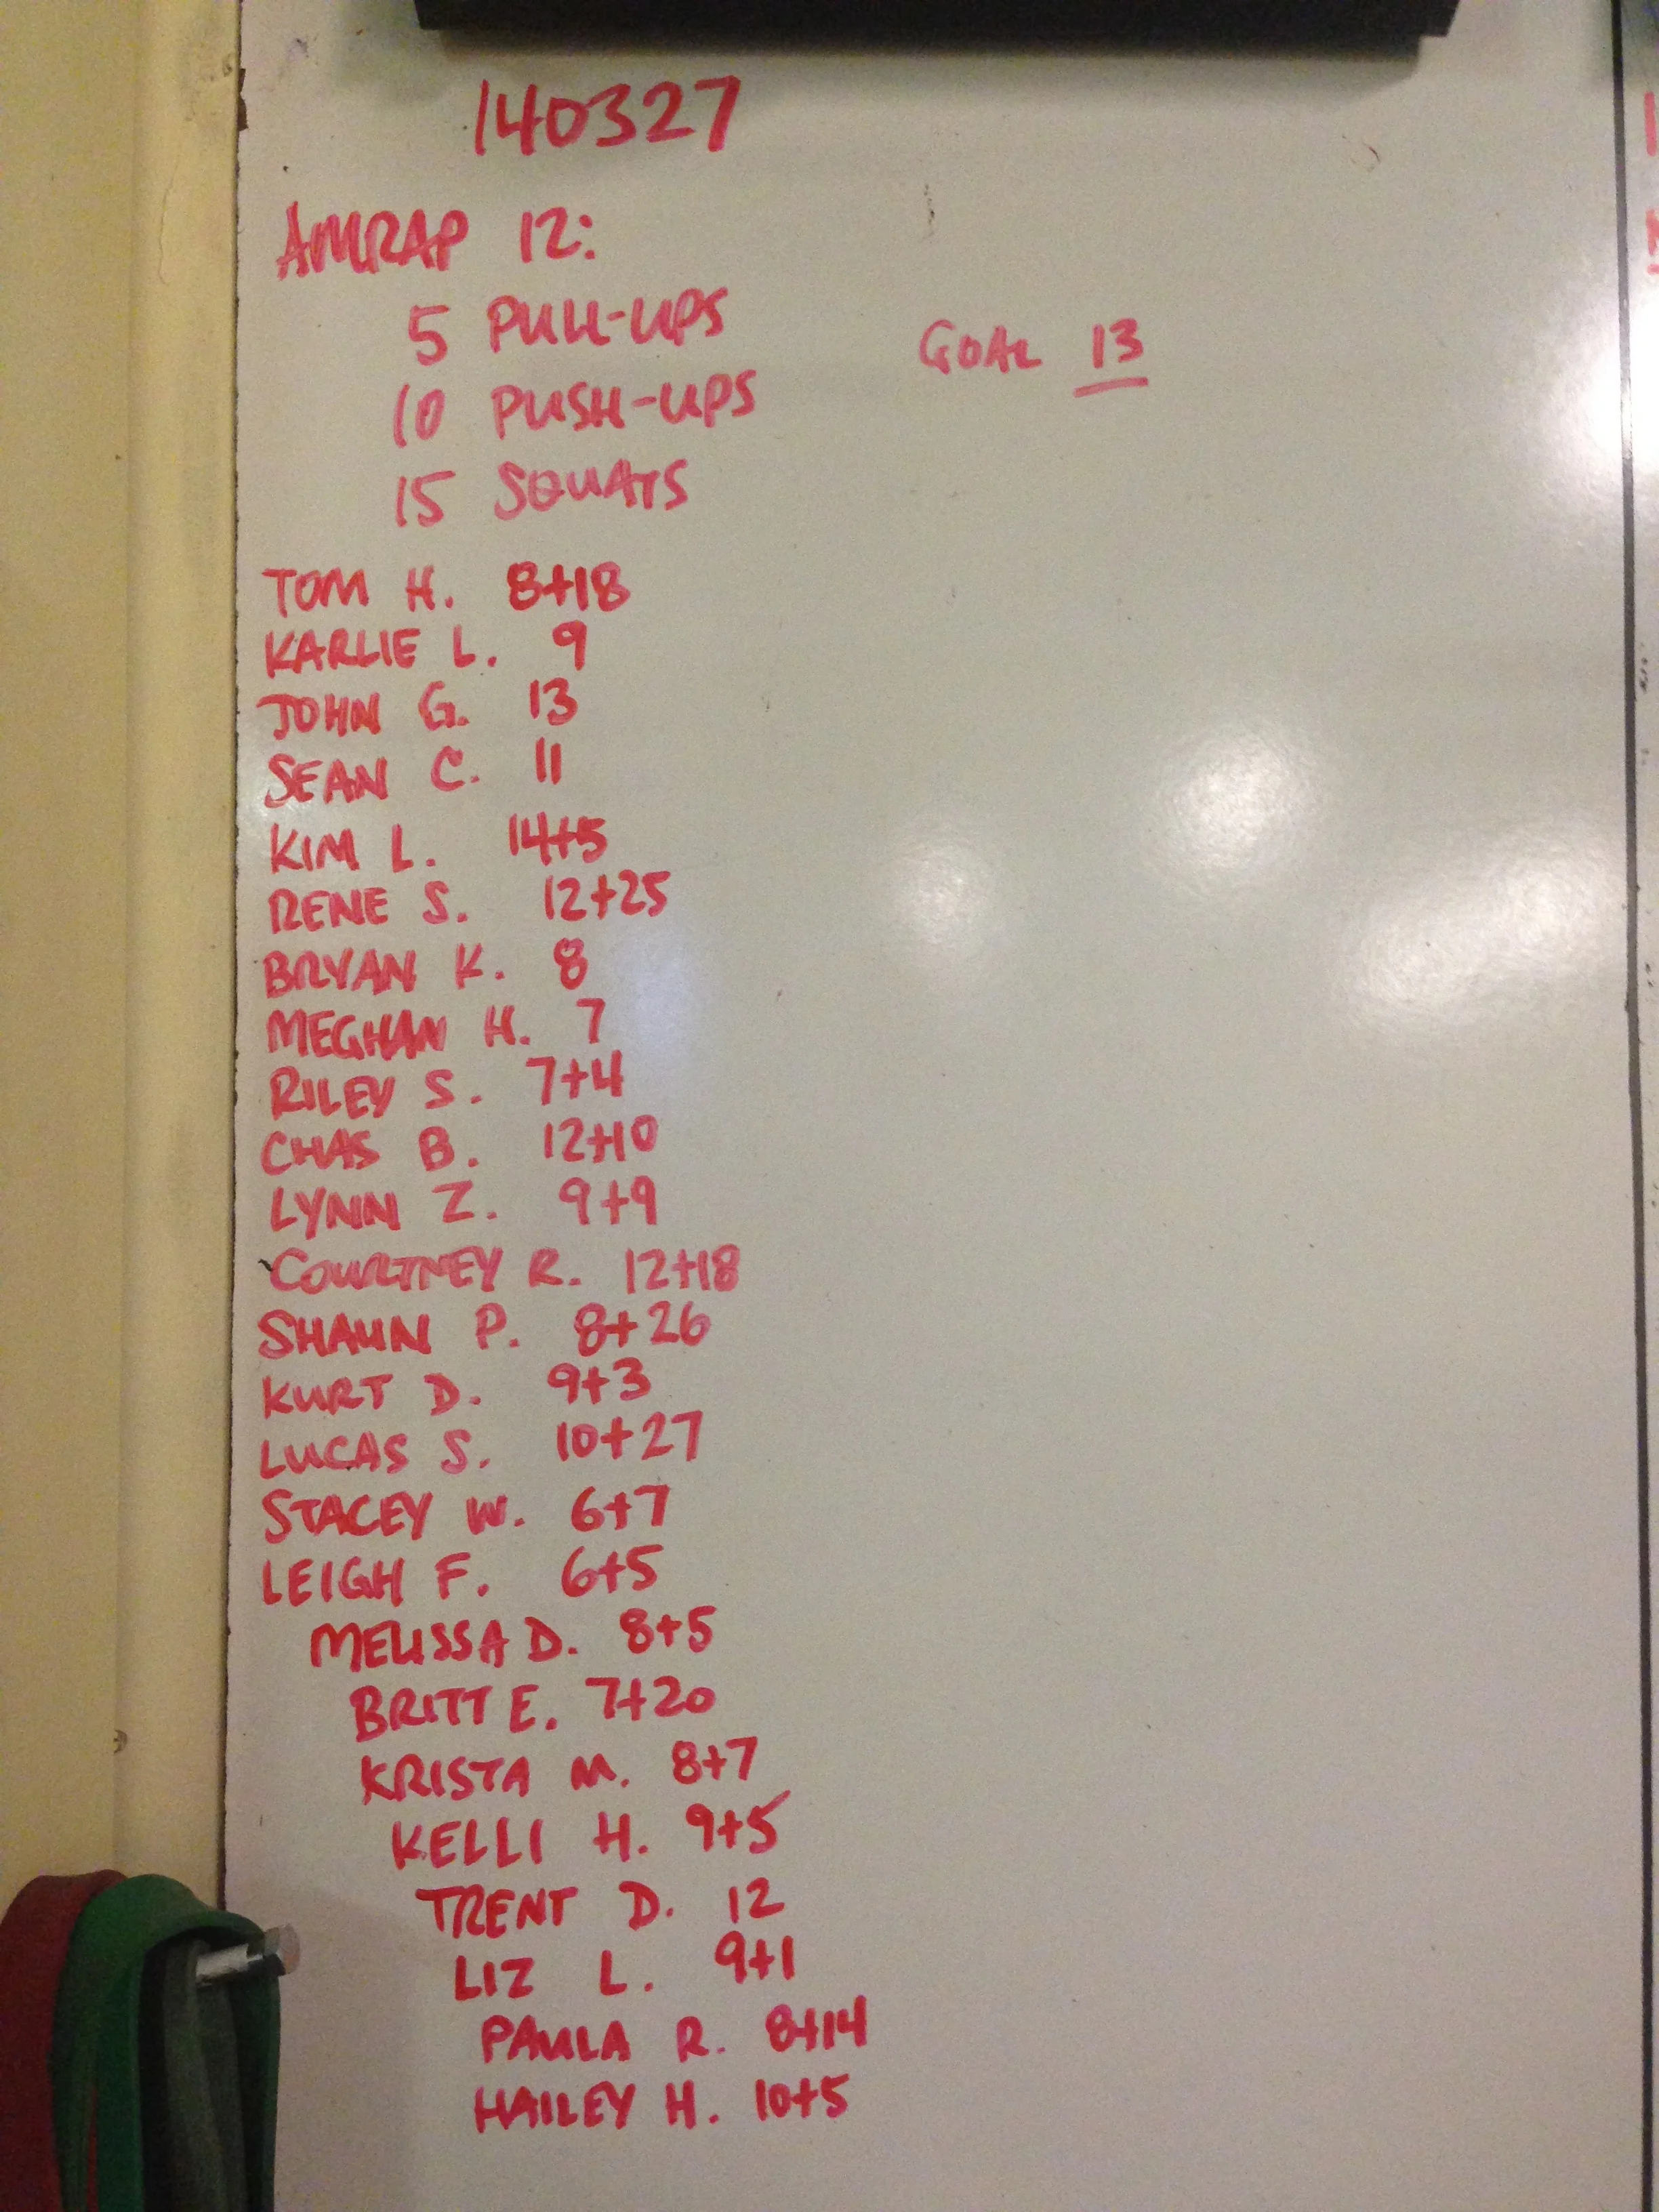 140327
AMRAP 12:
5 PULL-UPS
GOAL 13
10 PUSH-UPS
15 SQUATS
TOM H. 8+18
KARLIE L. 9
JOHN G. 13
SEAN C. 11
KIM L. 14+5
RENE S. 12+25
BRYAN K. 8
MEGHAN H. 7
RILEY S. 7+4
CHAS B. 12+10
LYNN Z. 9+9
COURTNEY R. 12+18
SHAUN P. 8+26
KURT D. 9+3
LUCAS S. 10+27
STACEY W. 6+7
LEIGH F. 6+5
MELISSA D. 8+5
BRITT E. 7+20
KRISTA M. 8+7
KELLI H. 9+5
TRENT D. 12
LIZ L. 9+1
PAULA R. 8+14
HAILEY H. 10+5